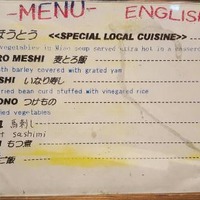 -MENU- ENGLISH
ほうとう <<SPECIAL LOCAL CUISINE>>
vegetables in Miso soup served extra hot in a
RO MESHI 麦とろ飯
th barley covered with grated yam
SHI いなり寿し
ried bean curd stuffed with vinegared rice
ONO つけもの
ed vegetables
馬刺し
t sashimi
もつ煮
ご飯